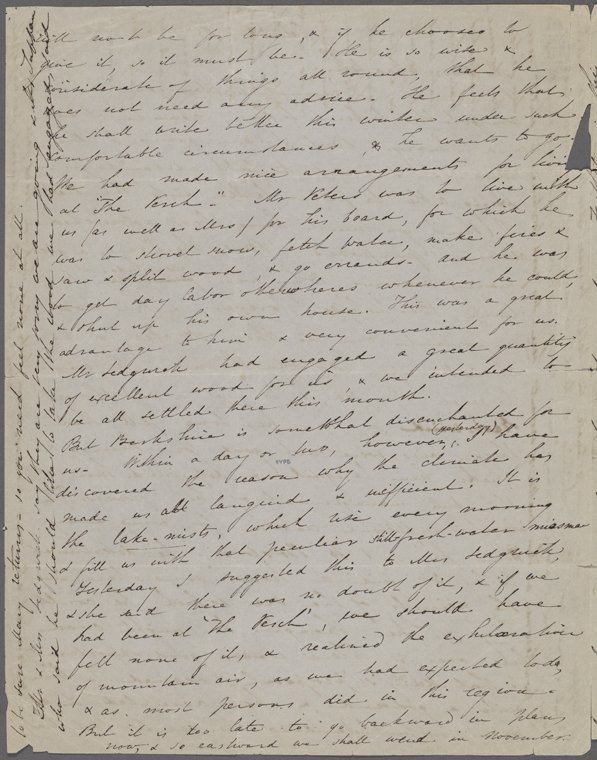 will not be for long, & if he chooses to
give it, so it must be. He is so wise &
considerate of things all round, that he
does not need any advice. He feels that
he shall write better this winter under such
comfortable circumstances, & he wants to go.
We had made nice arrangements for living
at "The Perch". Mr Peters was to live with
us (as well as Mrs) for his board, for which he
was to shovel snow, fetch water, make fires &
saw & split wood, & go errands. and he was
to get day labor otherwheres whenever he could,
& shut up his own house. This was a great
advantage to him & very convenient for us.
Mr Sedgwick had engaged a great quantity
of excellent wood for us, & we intended to
be all settled there this month.
But Berkshire is somewhat disenchanted for
us. Within a day or two, however, (yesterday) I have
discovered the reason why the climate has
made us all languid & inefficient. It is
the lake-mists, which rise every morning
& fill us with that peculiar still fresh-water miasma
Yesterday I suggested this to Mrs Sedgwick,
& she said there was no doubt of it, & if we
had been at "The Perch", we should have
felt none of it, & realized the exhilaration
of mountain air, as we had expected to do,
& as most persons did in this region.
But it is too late to go backward in plans
now, & so eastward we shall wend in November.
to be sure Mary returns. so you need feel none at all.
Mr & Mrs Sedgwick say they are very sorry we are going & Mr Tappan
who said he should take the wood we had engaged